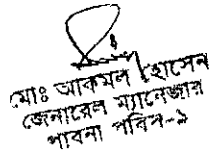 মোঃ আকমল হোসেন
জেনারেল ম্যানেজার
পাবনা পবিস-১